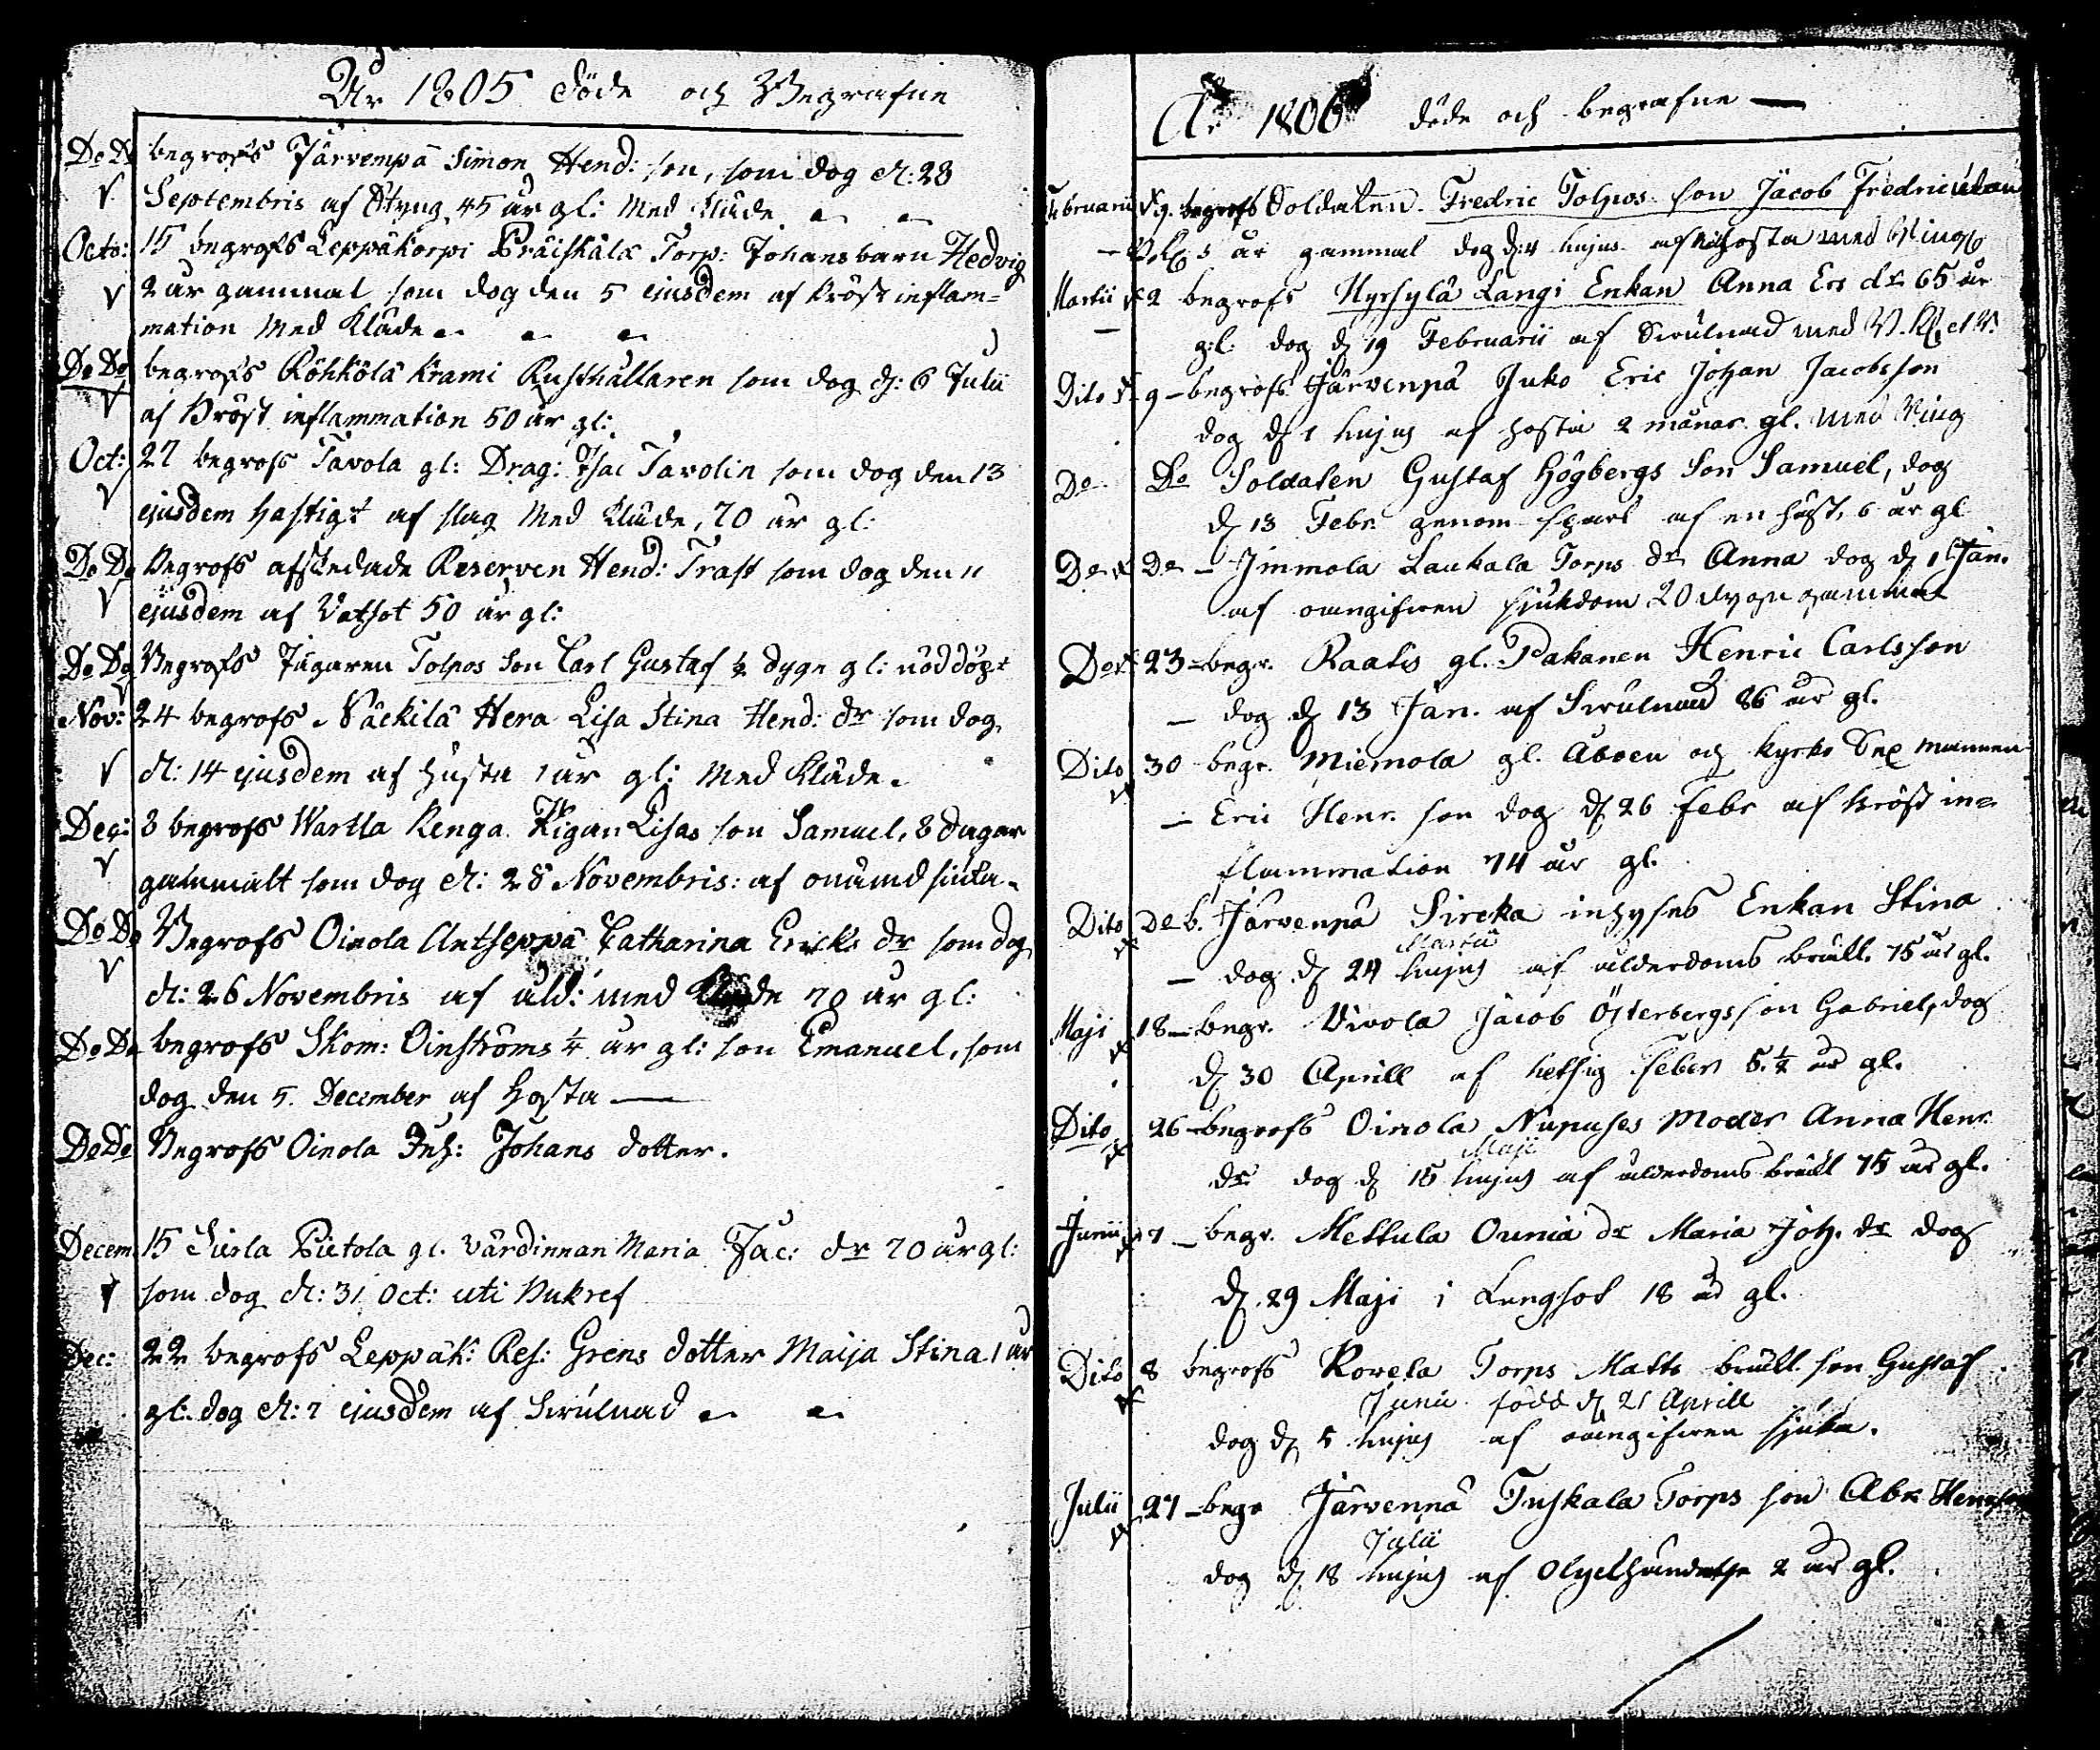 År 1805 döde och Begrafne
Do Do begrofs Järvempä Simon Hend: son, som dog d: 28
Septembris af Styng 45 år gl: Med Kläde
Octo: 15 begrofs Leppäkorpi Präiskälä Torp: Johans barn Hedvig
2 år gammal som dog den 5 ejusdem af Bröst inflam=
mation Med Kläde
Do Do begrofs Röhkölä Krami Rusthållaren som dog d: 6 Julii
af Bröst inflammation 50 år gl:
Oct: 27 begrofs Tavola gl: Drag: Isac Tavolin som dog den 13
ejusdem hastigt af slag Med Kläde, 70 år gl:
Do Do Begrofs afskedade Reserven Hend: Trast som dog den 11
ejusdem af Vatsot 50 år gl:
Do Do Begrofs Jägaren Tolpos Son Carl Gustaf ½ dygn gl: nöddöpt
Nov: 24 begrofs Näckilä Hera Lisa Stina Hend: dr som dog
d: 14 ejusdem af hosta 1 år gl: Med Kläde.
Dec: 8 begrofs Wartla Renga Pigan Lisas son Samuel, 8 dagar
gammalt som dog d: 28 Novembris: af onämd siuka.
Do Do Begrofs Oinola Antseppä Catharina Ericks dr som dog
d: 26 Novembris af åld: med Kläde 70 år gl:
Do Do begrofs Skom: Oinströms ¼ år gl: son Emanuel, som
dog den 5. December af Hosta
Do Do Begrofs Oinola Inh: Johans dotter.
Decem. 15 Sierla Pietola gl. Värdinnan Maria Jac: dr 70 år gl:
som dog d: 31 Oct: uti Bukref
Dec: 22 begrofs Leppäk: Res: Grens dotter Maija Stina 1 år
gl: dog d: 7 ejusdem af Svulnad
År 1806 döde och begrafne
Februarii 9. begrofs Soldaten Fredric Tolpos son Jacob Fredric
5 år gammal dog d: 4 hujus af hosta med
Martii 2 begrofs Hyrsylä Langi Enkan Anna Ers dr 65 år
gl. dog d 19 Februarii af Svulnad med
Dito 9 begrofs Järvenpä Juko Eric Johan Jacobsson
dog d 1 hujus af hosta 2 månar. gl. med Ring
Do Do Soldaten Gustaf Högbergs Son Samuel, dog
d 13 Febr. genom spark af en häst, 6 år gl
Do Do Immola Laukala Torps dr Anna dog d 1 Jan.
af oangifven sjukdom 20 dygn gammal
Do 23 begr. Raatis gl. Pakanen Henric Carlsson
dog d 13 Jan. af Svulnad 86 år gl.
Dito 30 begr. Miemola gl. Åboen och kyrko Sex mannen
Eric Henr. son dog d 26 Febr af bröst in=
flammation 74 år gl.
Dito Do b. Järvenpä Sireka inhyses Enkan Stina
Martii
dog d 24 hujus af ålderdoms bräkl. 75 år gl.
Maji 18 begr. Uivola Jacob Österbergs son Gabriel, dog
d 30 Aprill af hetsig feber 5.½ år gl.
Dito 26 begrofs Oinola Nupuses Moder Anna Henr.
Maji
dr dog d 15 hujus af ålderdoms bräkl 75 år gl.
Junii 7 begr. Mettula Ounia dr Maria Joh. dr dog
d 29 Maji i Lungsot 18 år gl.
Dito 8 begrofs Rovela Torps Matts bräkl. son Gustaf
Junii född d 21 Aprill
dog d 5 hujus af oangifven sjuka.
Julii 27 begr Järvenpä Tuskala Torps son Abr. Henr son
Julii
dog d 18 hujus af Olyckshändelse 2 år gl.